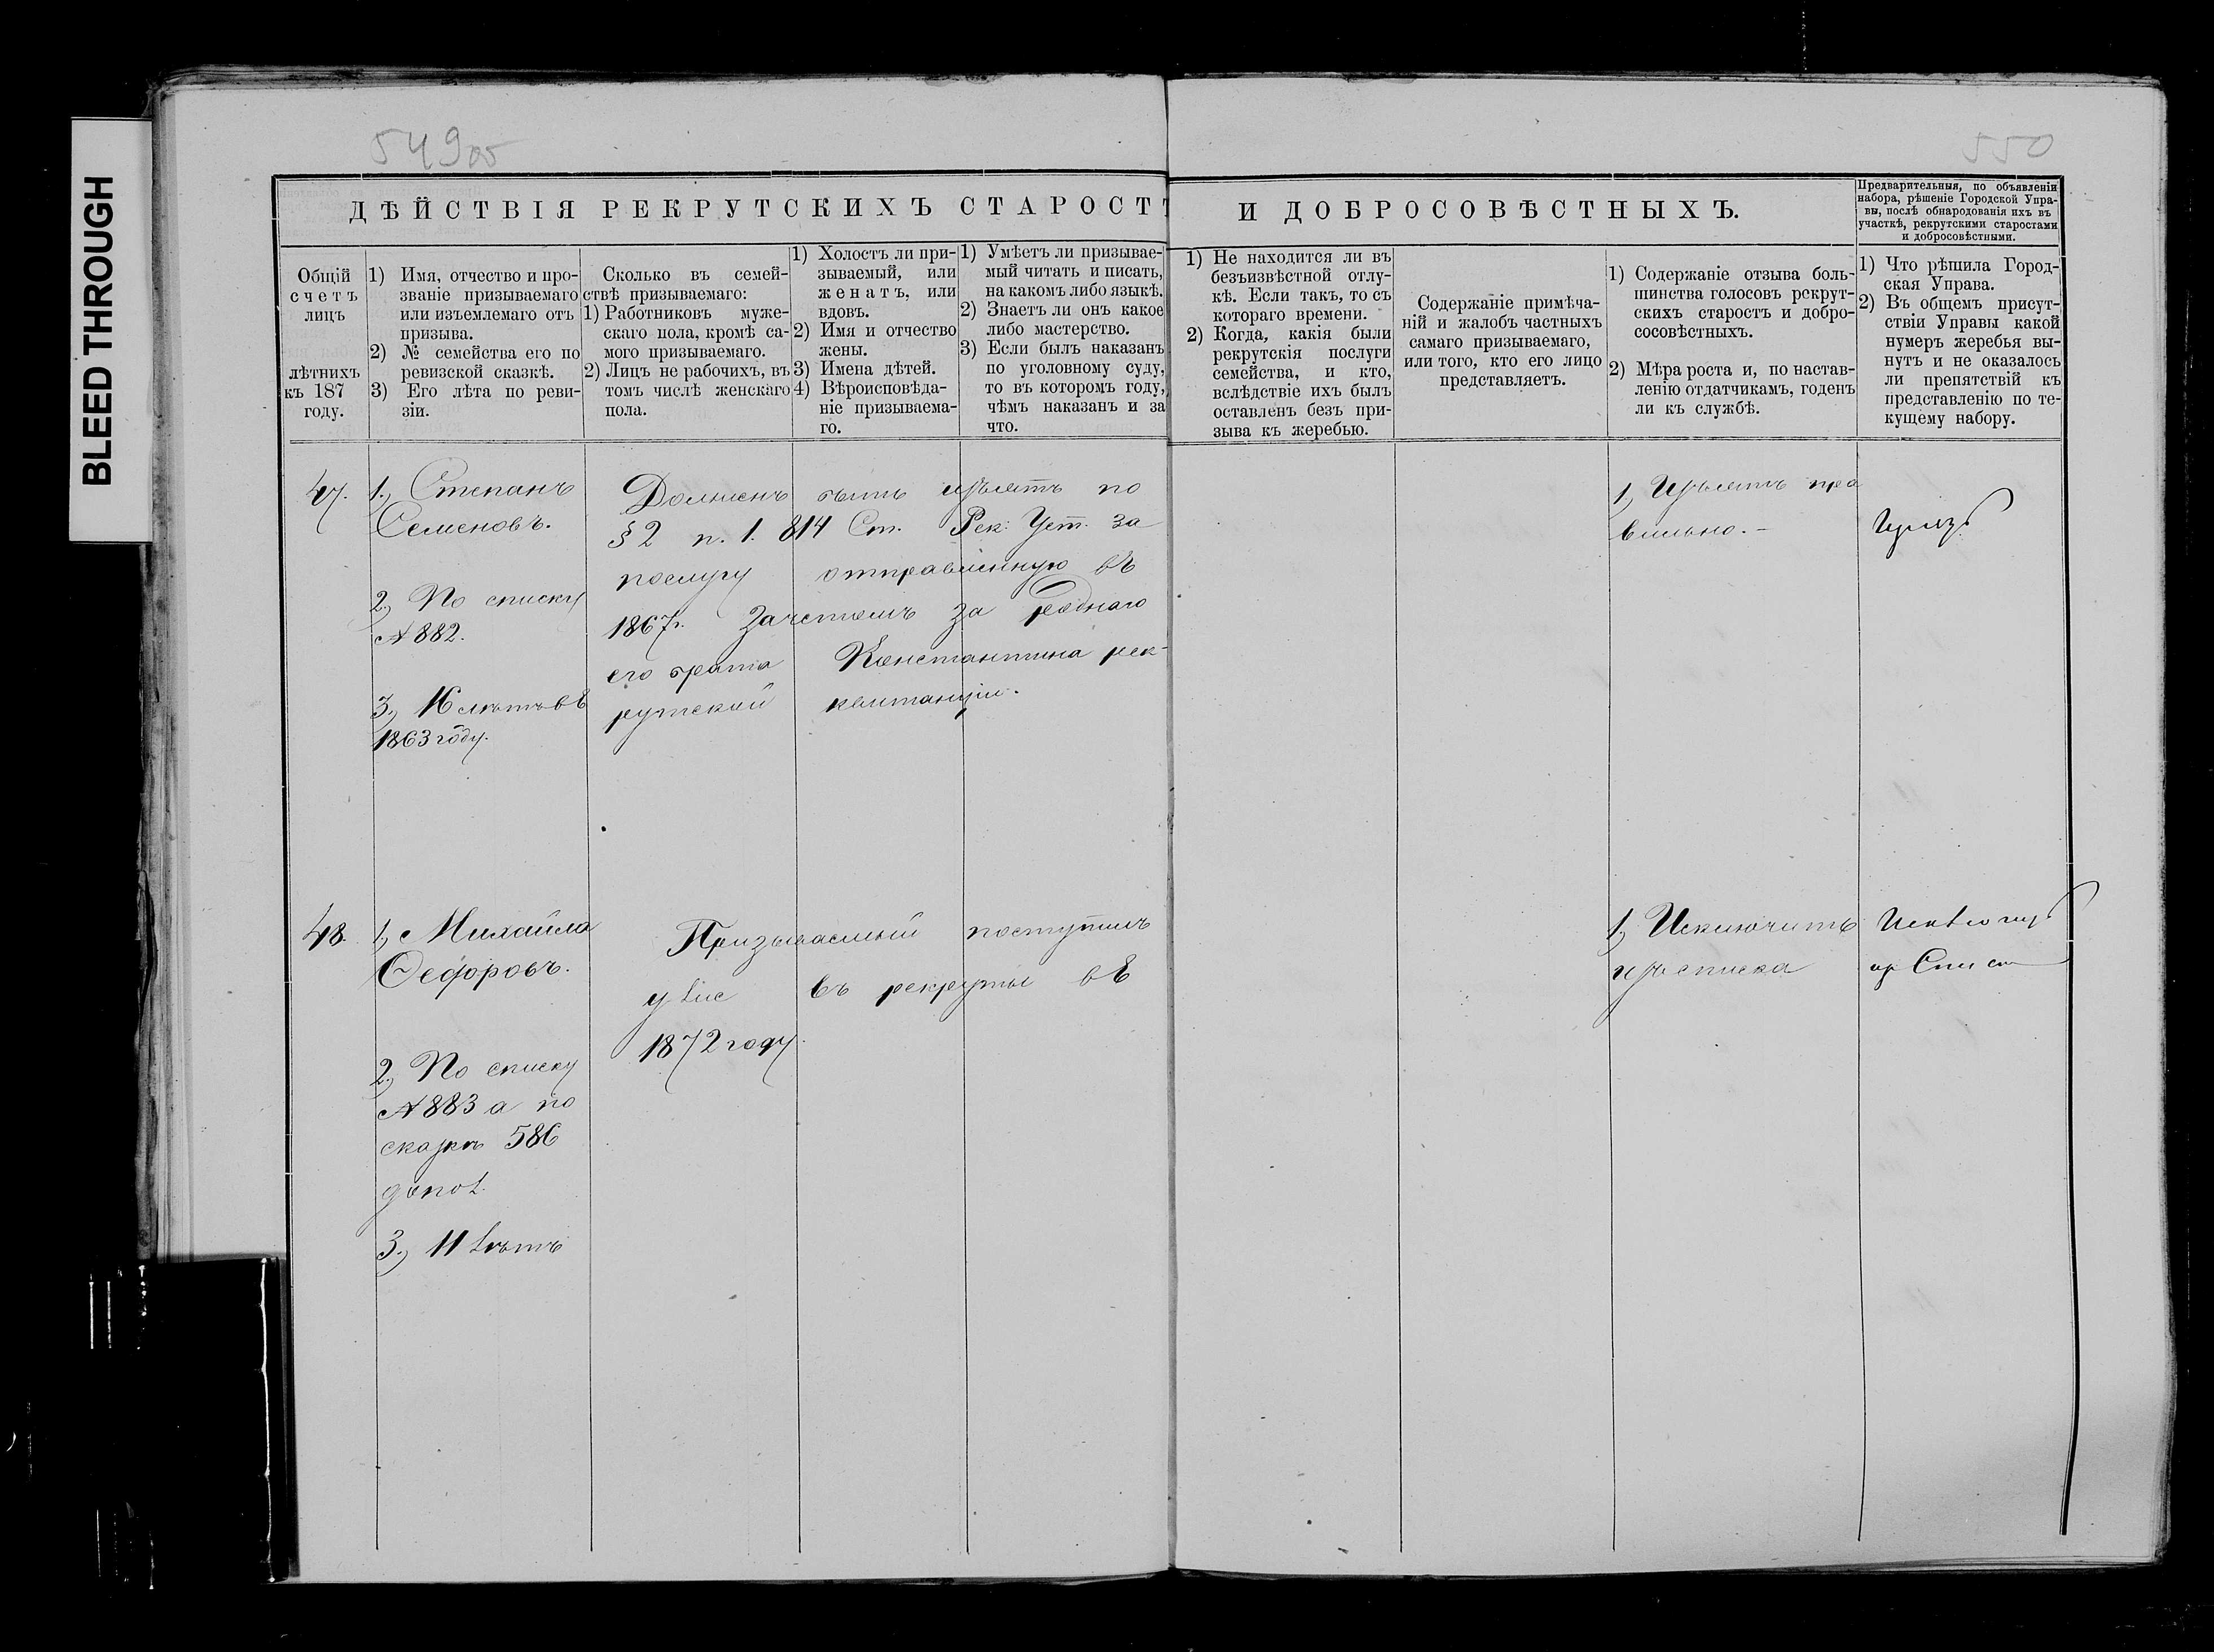 BLEED THROUGH
549об
550
ДѢЙСТВІЯ РЕКРУТСКИХЪ СТАРОСТЪ И ДОБРОСОВѢСТНЫХЪ.
Предварительныя, по объявленіи
набора, рѣшеніе Городской Упра-
вы, послѣ обнародованія ихъ въ
участкѣ, рекрутскими старостами
и добросовѣстными.
Общій
счетъ
лицъ
лѣтнихъ
къ 187
году.
1) Имя, отчество и про-
званіе призываемаго
или изъемлемаго отъ
призыва.
2) № семейства его по
ревизской сказкѣ.
3) Его лѣта по реви-
зіи.
Сколько въ семей-
ствѣ призываемаго:
1) Работниковъ муже-
скаго пола, кромѣ са-
мого призываемаго.
2) Лицъ не рабочихъ, въ
томъ числѣ женскаго
пола.
1) Холостъ ли при-
зываемый, или
женатъ, или
вдовъ.
2) Имя и отчество
жены.
3) Имена дѣтей.
4) Вѣроисповѣда-
ніе призываема-
го.
1) Умѣетъ ли призывае-
мый читать и писать,
на какомъ либо языкѣ.
2) Знаетъ ли онъ какое
либо мастерство.
3) Если былъ наказанъ
по уголовному суду,
то въ которомъ году,
чѣмъ наказанъ и за
что.
1) Не находится ли въ
безъизвѣстной отлу-
кѣ. Если такъ, то съ
котораго времени.
2) Когда, какія были
рекрутскія послуги
семейства, и кто,
вслѣдствіе ихъ былъ
оставленъ безъ при-
зыва къ жеребью.
Содержаніе примѣча-
ній и жалобъ частныхъ
самаго призываемаго,
или того, кто его лицо
представляетъ.
1) Содержаніе отзыва боль-
шинства голосовъ рекрут-
скихъ старостъ и добро-
сосовѣстныхъ.
2) Мѣра роста и, по настав-
ленію отдатчикамъ, годенъ
ли къ службѣ.
1) Что рѣшила Город-
ская Управа.
2) Въ общемъ присут-
ствіи Управы какой
нумеръ жеребья вы-
нутъ и не оказалось
ли препятствій къ
представленію по те-
кущему набору.
47.
1., Степанъ
Семеновъ.
2., По списку
№ 882.
3., 16 лѣтъ въ
1863 году.
Долженъ быть изъятъ по
§ 2 п. 1. 814 Ст. Рек: Уст. за
послугу отправленную въ
1867г. Зачетомъ за роднаго
его брата Константина рек-
рутской квитанціи.
1., Изъятъ пра
вильно. –
48.
1., Михайла
Ѳедоровъ.
2., По списку
№ 883 а по
сказкѣ 586
допол.
3., 11 лѣтъ
Призываемый поступилъ
уже въ рекруты въ
1872 году.
1., Исключить
изъ списка